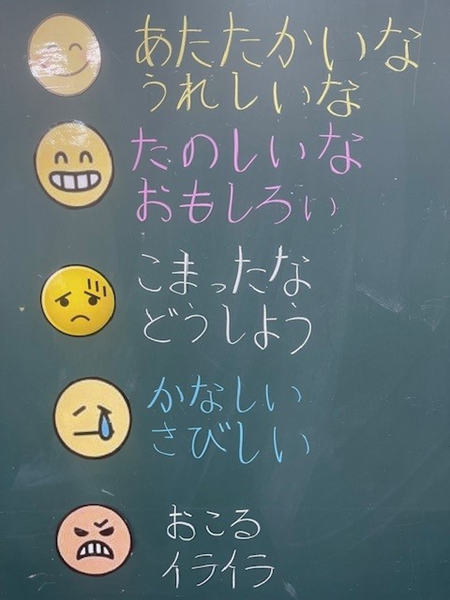 あたたかいな
うれしいな
たのしいな
おもしろい
こまったな
どうしよう
かなしい
さびしい
おこる
イライラ